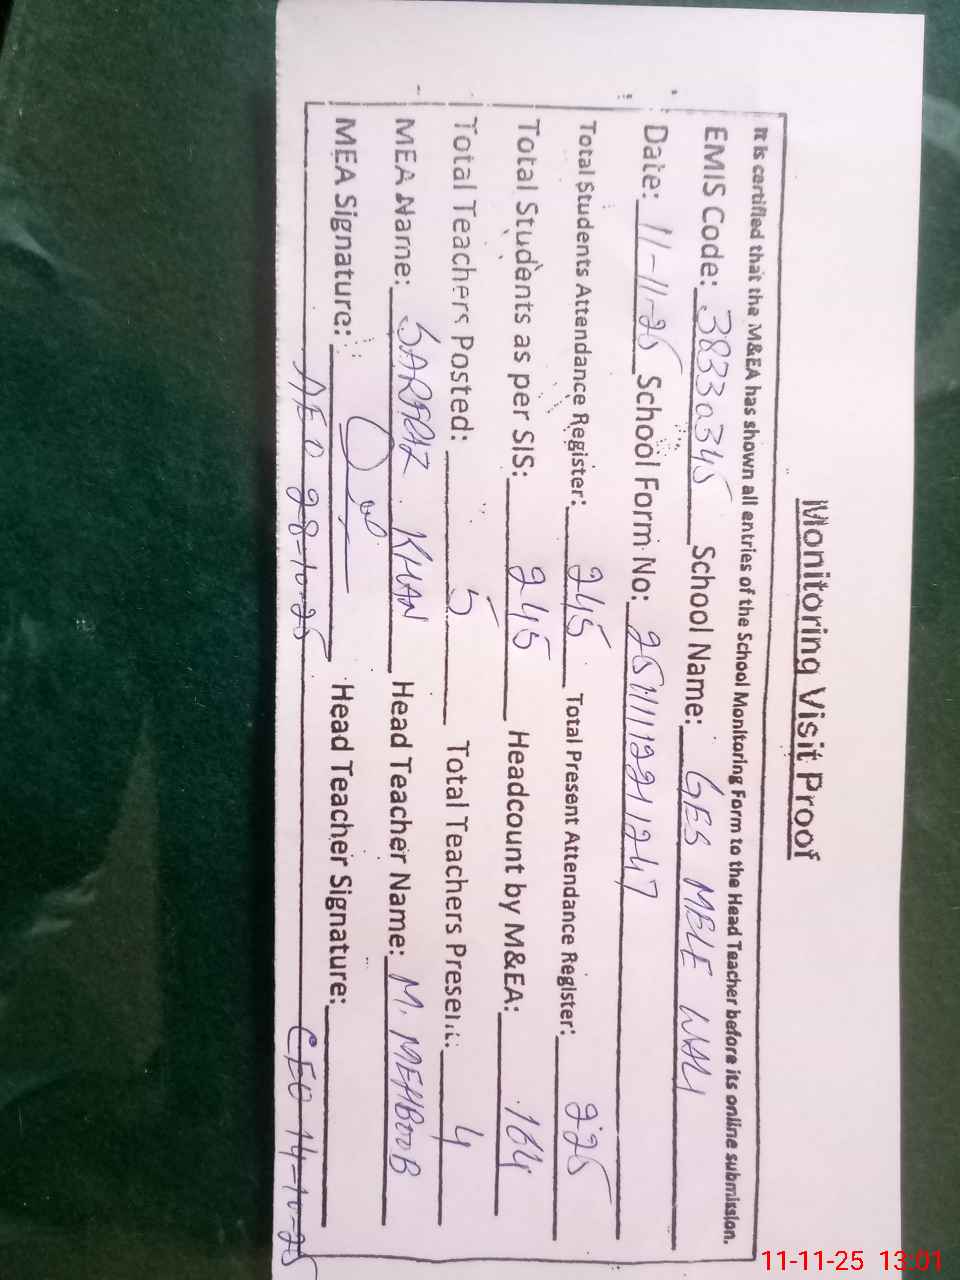 Monitoring Visit Proof
It is certified that the M&EA has shown all entries of the School Monitoring Form to the Head Teacher before its online submission.
EMIS Code: 38330345 School Name: GES MELE WALI
Date: 11-11-25 School Form No: 251111221247
Total Students Attendance Register: 245 Total Present Attendance Register: 225
Total Students as per SIS: 245 Headcount by M&EA: 164
Total Teachers Posted: 5 Total Teachers Present: 4
MEA Name: SARFRAZ KHAN Head Teacher Name: M. MEHBOOB
MEA Signature: Head Teacher Signature:
AEO 28-10-25 CEO 14-10-25
11-11-25 13:01